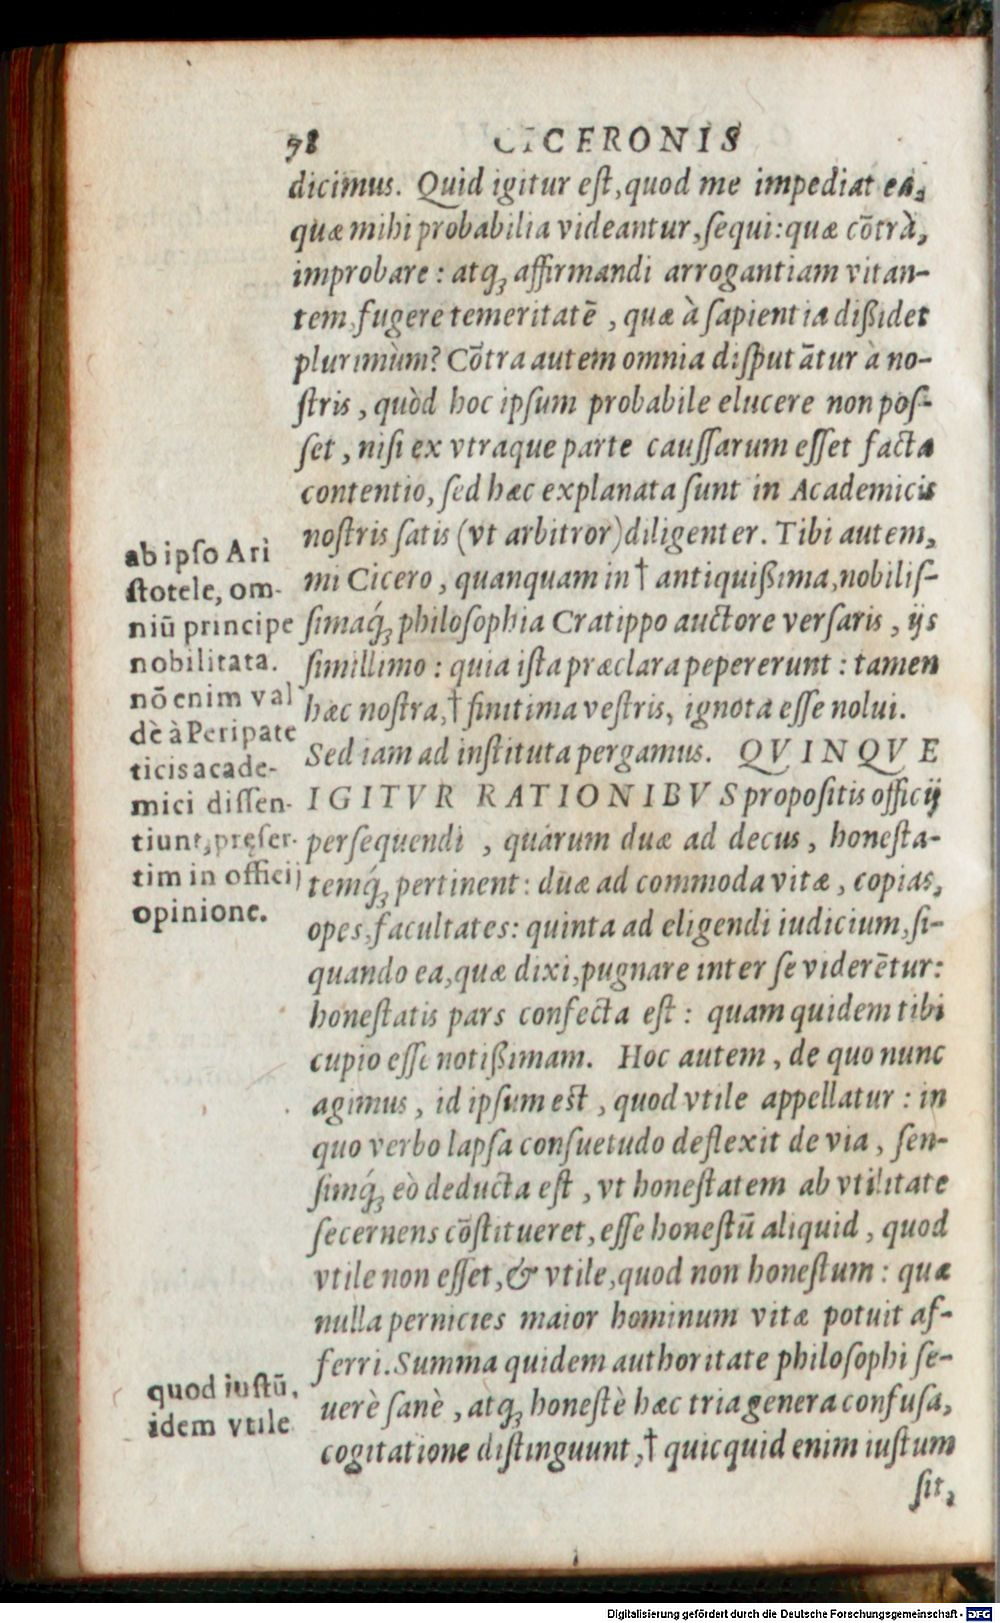 98 CICERONIS
dicimus. Quid igitur eſt, quod me impediat ea,
quæ mihi probabilia videantur, ſequi: quæ cõtrà,
improbare: atq; affirmandi arrogantiam vitan-
tem, fugere temeritatẽ, quæ à ſapientia dißidet
plurimùm? Cõtra autem omnia diſputãtur à no-
ſtris, quòd hoc ipſum probabile elucere non poſ-
ſet, niſi ex vtraque parte cauſſarum eſſet facta
contentio, ſed hæc explanata ſunt in Academicis
noſtris ſatis (vt arbitror) diligenter. Tibi autem,
mi Cicero, quanquam in † antiquißima, nobiliſ-
ſimaq́; philoſophia Cratippo auctore verſaris, ijs
ſimillimo: quia iſta præclara pepererunt: tamen
hæc noſtra, † finitima veſtris, ignota eſſe nolui.
Sed iam ad inſtituta pergamus. QVINQVE
IGITVR RATIONIBVS propoſitis officij
perſequendi, quárum duæ ad decus, honeſta-
temq́; pertinent: duæ ad commoda vitæ, copias,
opes, facultates: quinta ad eligendi iudicium, ſi-
quando ea, quæ dixi, pugnare inter ſe viderẽtur:
honeſtatis pars confecta eſt: quam quidem tibi
cupio eſſe notißimam. Hoc autem, de quo nunc
agimus, id ipſum est, quod vtile appellatur: in
quo verbo lapſa conſuetudo deflexit de via, ſen-
ſimq́; eò deducta eſt, vt honeſtatem ab vtilitate
ſecernens cõſtitueret, eſſe honeſtũ aliquid, quod
vtile non eſſet, & vtile, quod non honeſtum: quæ
nulla pernicies maior hominum vitæ potuit af-
ferri. Summa quidem authoritate philoſophi ſe-
uerè ſanè, atq; honeſtè hæc tria genera confuſa,
cogitatione diſtinguunt, † quicquid enim iuſtum
ſit,
ab ipſo Ari
ſtotele, om-
niũ principe
nobilitata.
nõ enim val
dè à Peripate
ticis acade-
mici diſſen-
tiunt, pręſer-
tim in officij
opinione.
quod iuſtũ,
idem vtile
Digitalisierung gefördert durch die Deutsche Forschungsgemeinschaft - DFG